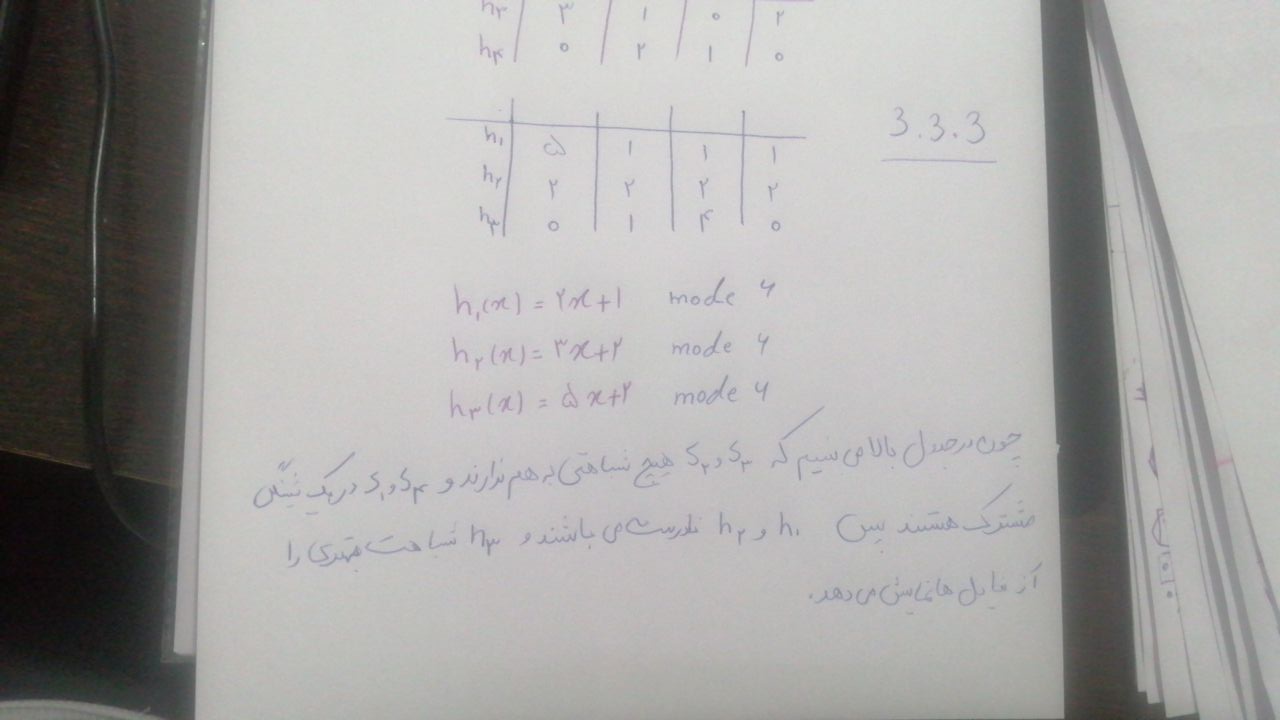 h۳ ۳ ۱ ۰ ۲
h۴ ۰ ۲ ۱ ۰
3.3.3
h۱ ۵ ۱ ۱ ۱
h۲ ۲ ۲ ۲ ۲
h۳ ۰ ۱ ۴ ۰
h۱(x) = ۲x+۱ mode ۶
h۲(x) = ۳x+۲ mode ۶
h۳(x) = ۵x+۲ mode ۶
چون در جدول بالا می بینیم که S۳ و S۲ هیچ شباهتی به هم ندارند و S۴ و S۱ در یک
مشترک هستند پس h۱ و h۲ نادرست می باشند و h۳ شباهت بهتری را
از فایل ها نمایش می دهد.